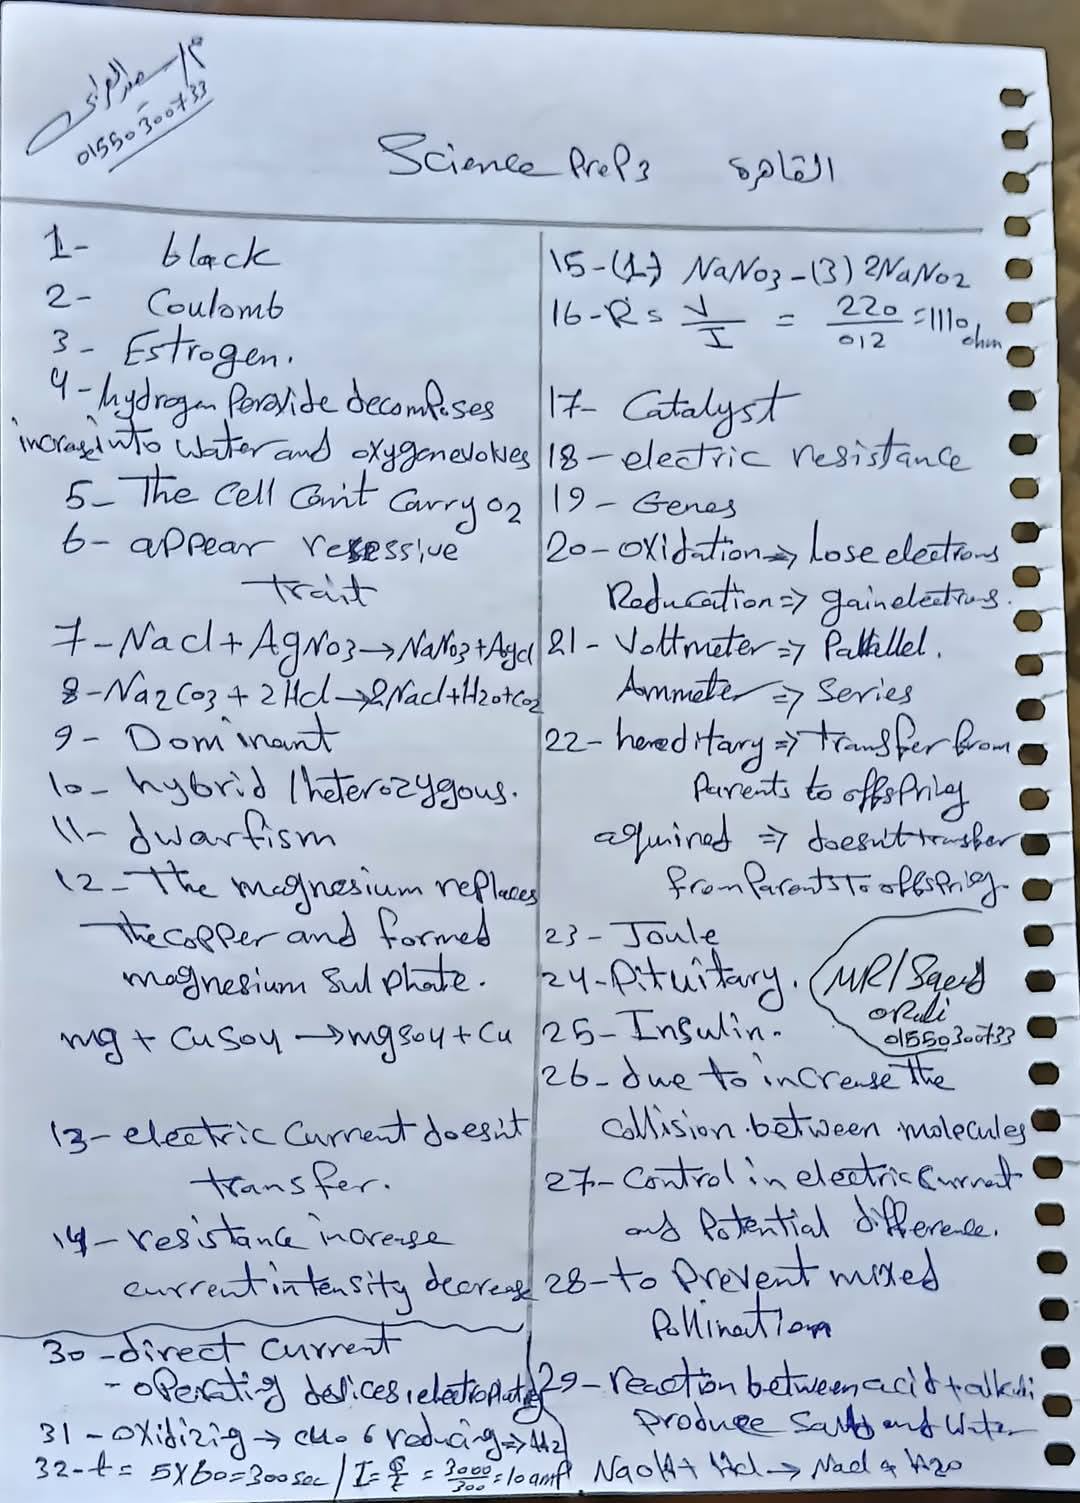 01550300733
Science Prep3 القاهرة
1- black
2- Coulomb
3- Estrogen.
4- hydrogen Peroxide decomposes
increase into water and oxygen evolves
5- The Cell Can't Carry O2
6- appear resessive
trait
7- Nacl + AgNO3 → NaNo3 + Agcl
8- Na2Co3 + 2Hcl → 2Nacl + H2O + Co2
9- Dominant
10- hybrid / heterozygous.
11- dwarfism
12- The magnesium replaces
the copper and formed
magnesium Sulphate.
mg + CuSo4 → mgSo4 + Cu
13- electric Current doesn't
transfer.
14- resistance increase
current intensity decrease
15-(1) NaNo3 -(3) 2NaNo2
16- R = V/I = 220/012 = 1110 ohm
17- Catalyst
18- electric resistance
19- Genes
20- oxidation ⇒ Lose electrons
Reducation ⇒ gain electrons.
21- Voltmeter ⇒ Parallel.
Ammeter ⇒ Series
22- hereditary ⇒ transfer from
Parents to offspring
aquired ⇒ doesn't transfer
from Parents To offspring.
23- Joule
24- Pituitary.
MR/ Saeed
01550300733
25- Insulin.
26- due to increase the
collision between molecules
27- Control in electric Current
and Potential difference.
28- to Prevent mixed
Pollination
29- reaction between acid + alkali
Produce Salt and Water
NaoH + Hcl → Nacl + H2o
30- direct current
- operating devices, electroplating
31- oxidizing → cuo 6 reducing ⇒ H2
32- t = 5X60 = 300 sec / I = Q/t = 3000/300 = 10 amp